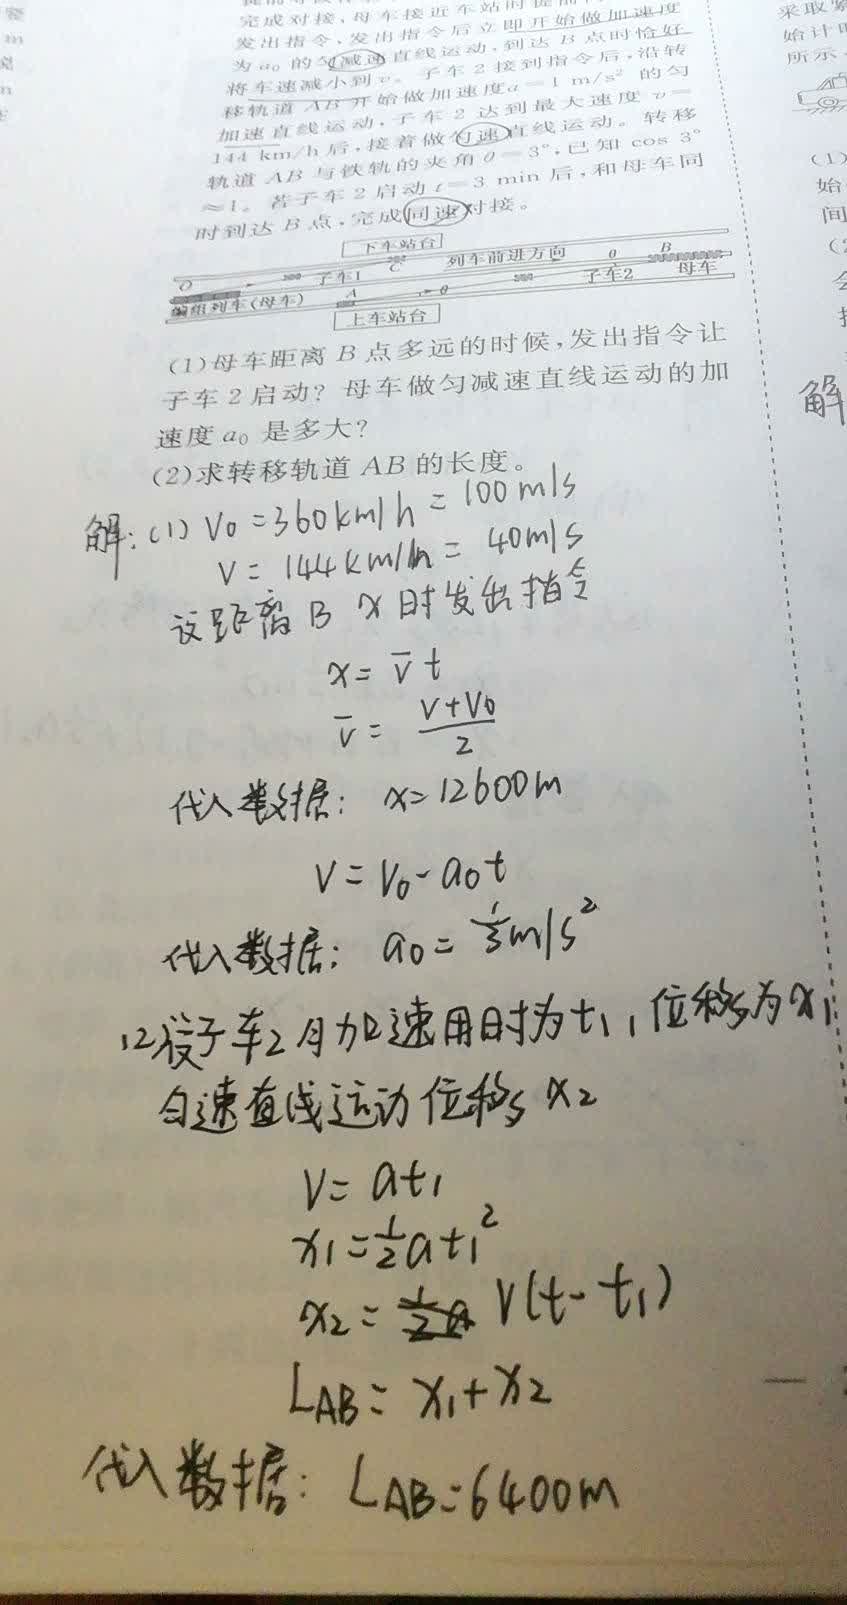 完成对接,母车接近车站时
发出指令,发出指令后立即开始做加速度
为a₀的匀减速直线运动,到达B点时恰好
将车速减小到v。子车2接到指令后,沿转
移轨道AB开始做加速度a=1 m/s²的匀
加速直线运动,子车2达到最大速度v=
144 km/h后,接着做匀速直线运动。转移
轨道AB与铁轨的夹角θ=3°,已知cos 3°
≈1。若子车2启动t=3 min后,和母车同
时到达B点,完成同速对接。
下车站台
O 子车1 C 列车前进方向 θ B
编组列车(母车) A θ 子车2 母车
上车站台
(1)母车距离B点多远的时候,发出指令让
子车2启动?母车做匀减速直线运动的加
速度a₀是多大?
(2)求转移轨道AB的长度。
解:(1) V₀=360km/h=100m/s
V=144km/h=40m/s
设距离B x时发出指令
x=v̄t
v̄=(V+V₀)/2
代入数据: x=12600m
V=V₀-a₀t
代入数据: a₀=1/3m/s²
(2)设子车2匀加速用时为t₁,位移为x₁
匀速直线运动位移x₂
V=at₁
x₁=1/2at₁²
x₂=V(t-t₁)
L_AB=x₁+x₂
代入数据: L_AB=6400m
采取紧
始计时
所示
(1)
始
间
(2
解